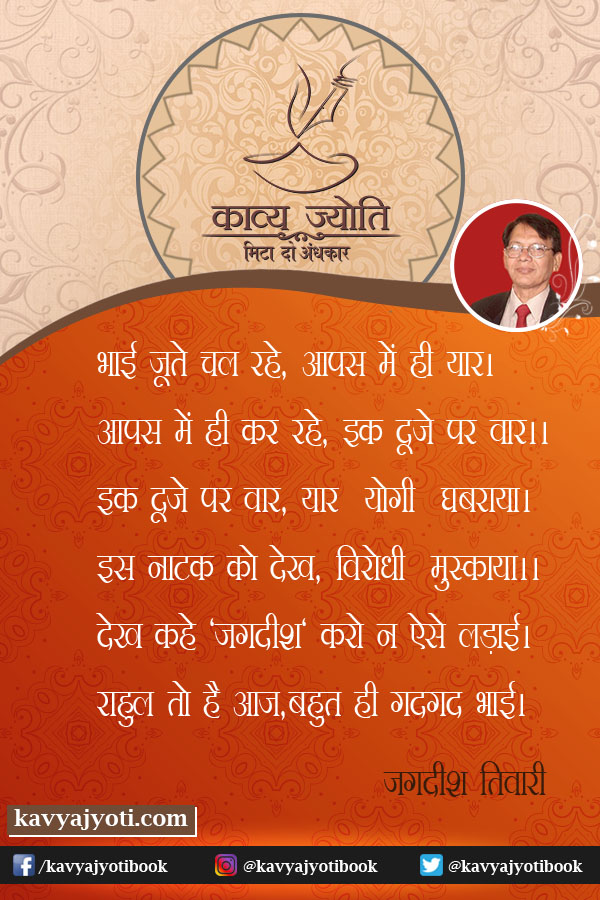 काव्य ज्योति
मिटा दो अंधकार
भाई जूते चल रहे, आपस में ही यार।
आपस में ही कर रहे, इक दूजे पर वार।।
इक दूजे पर वार, यार योगी घबराया।
इस नाटक को देख, विरोधी मुस्काया।।
देख कहे ‘जगदीश‘ करो न ऐसे लड़ाई।
राहुल तो है आज,बहुत ही गदगद भाई।
जगदीश तिवारी
kavyajyoti.com
/kavyajyotibook @kavyajyotibook @kavyajyotibook